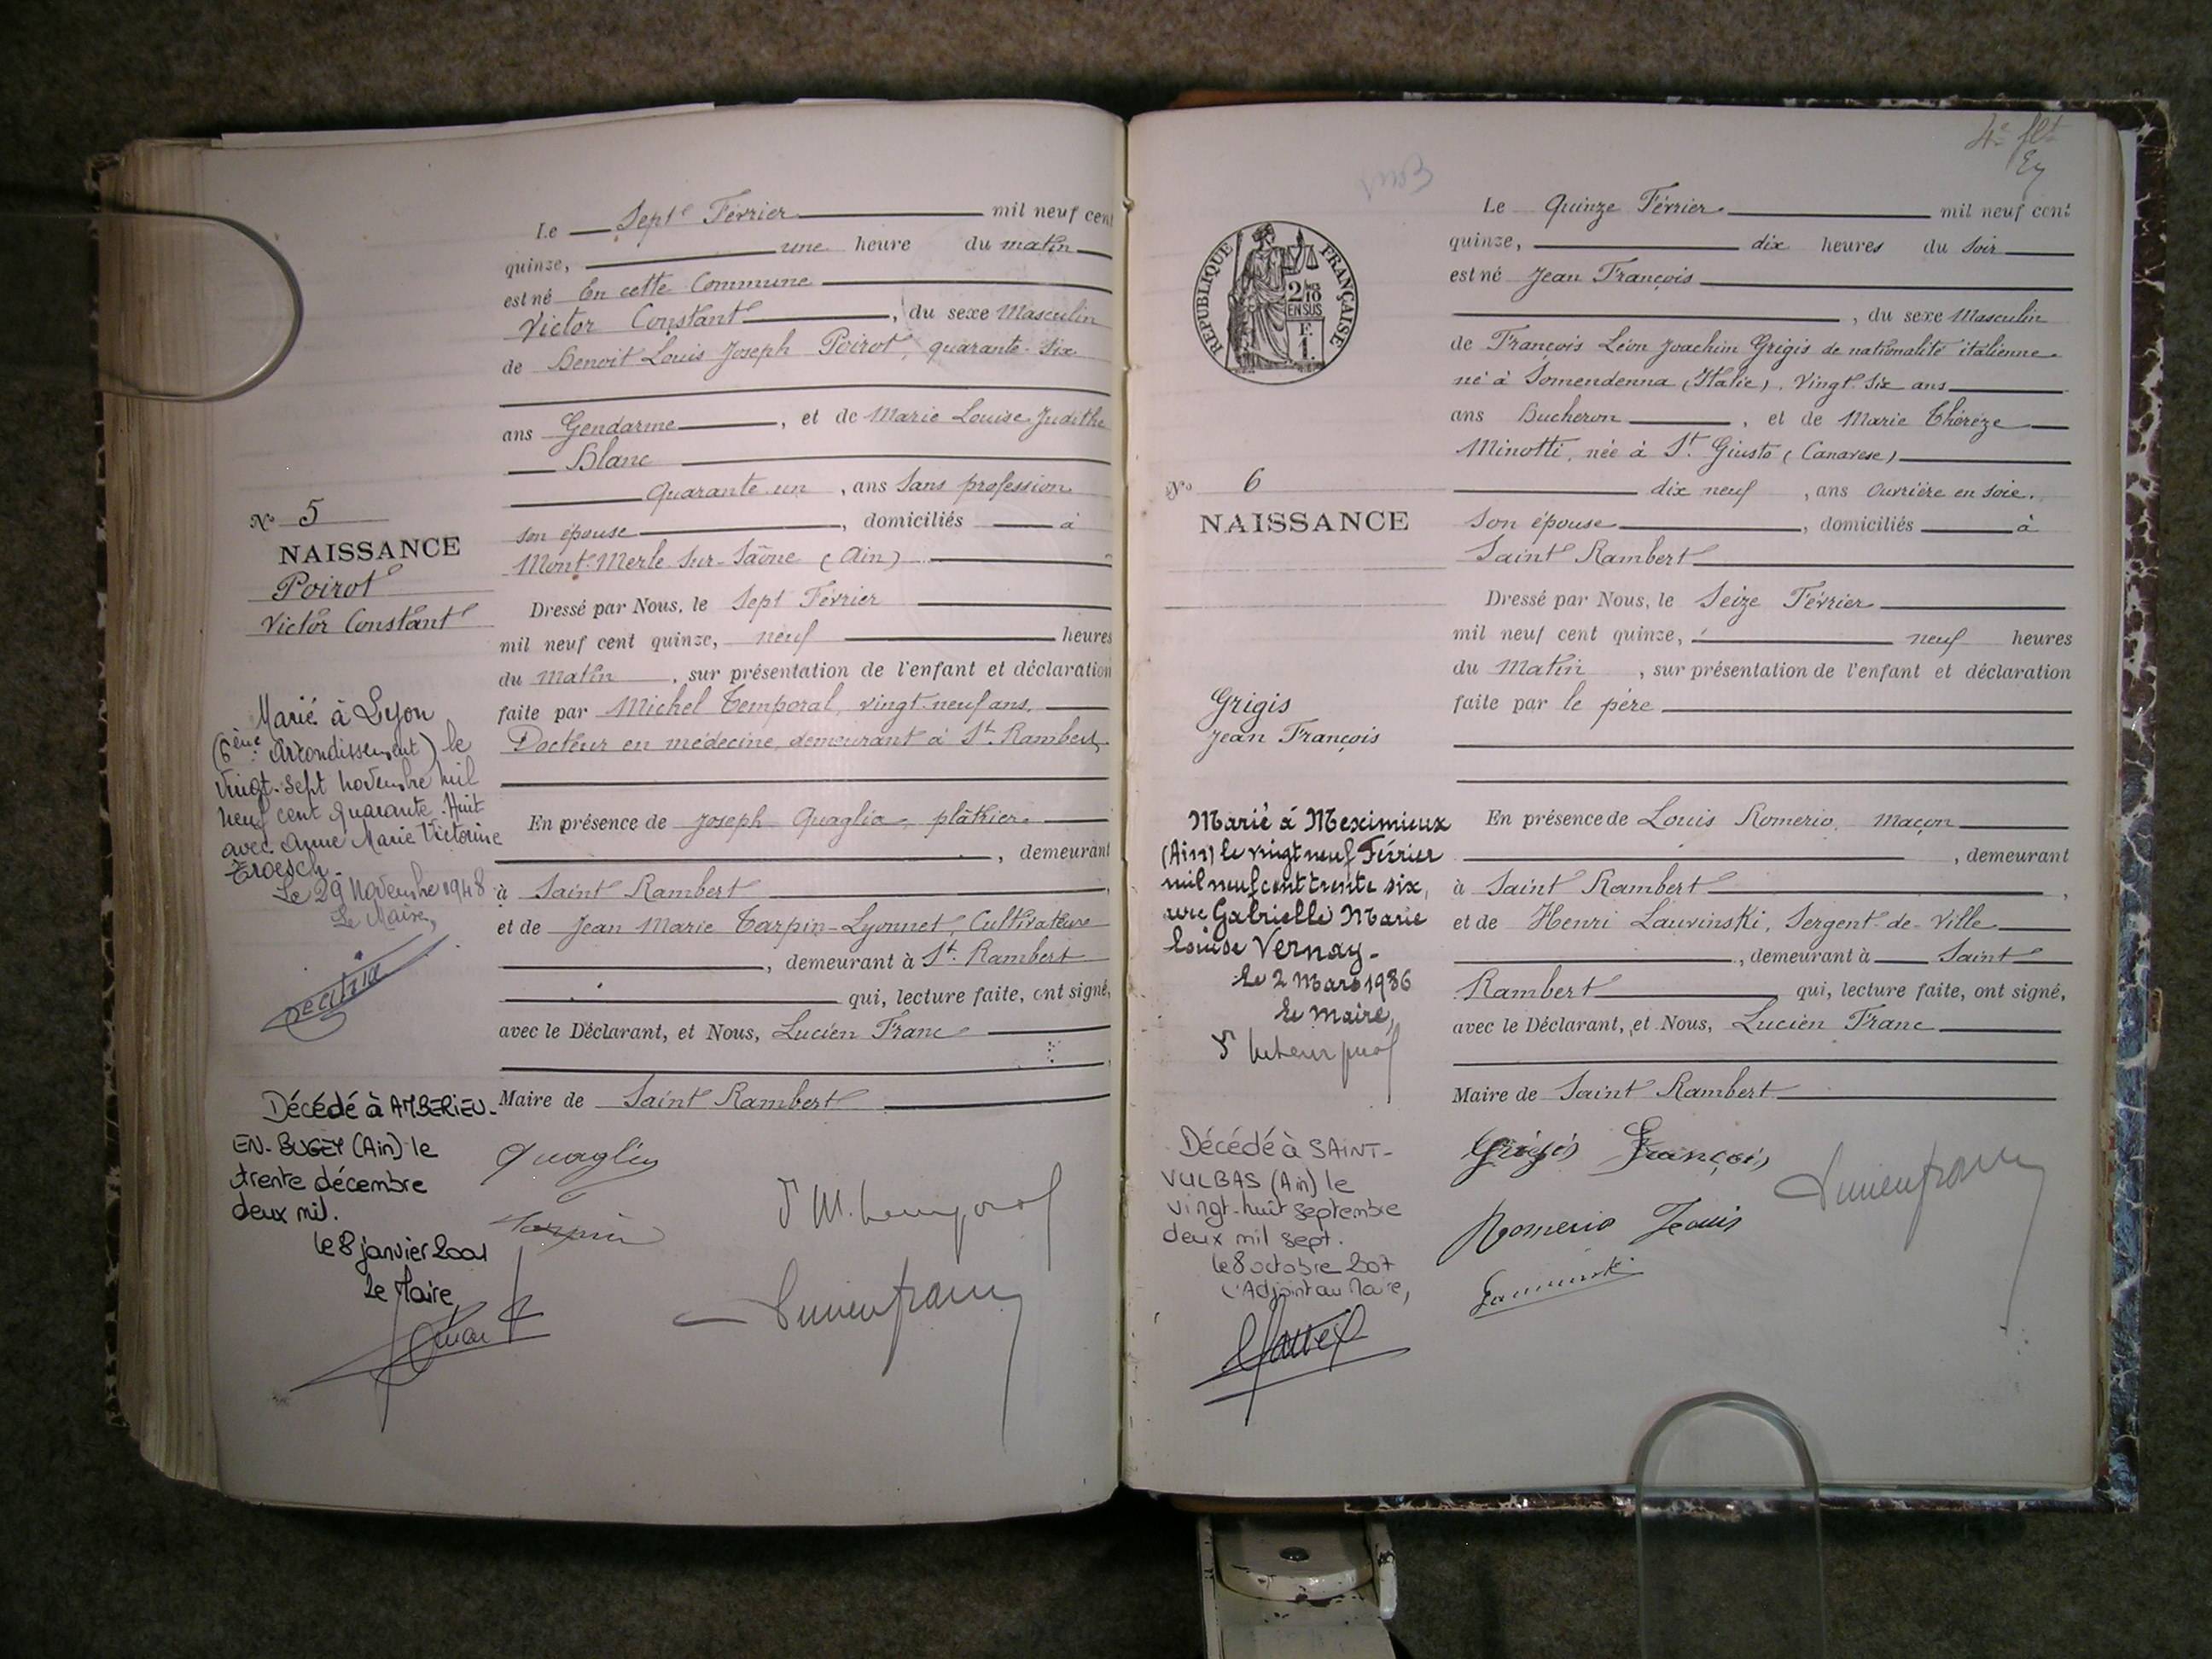 Le Sept Février mil neuf cent
quinze, une heure du matin
est né En cette Commune
Victor Constant, du sexe Masculin
de Benoit Louis Joseph Poirot, quarante-six
ans Gendarme, et de Marie Louise Judithe
Blanc
quarante-un, ans Sans profession
son épouse, domiciliés à
Mont-Merle-Sur-Saône (Ain)
Dressé par Nous, le Sept Février
mil neuf cent quinze, neuf heures
du matin, sur présentation de l'enfant et déclaration
faite par Michel Temporal, vingt-neuf ans,
Docteur en médecine, demeurant à St. Rambert
En présence de Joseph Quaglia, plâtrier
, demeurant
à Saint Rambert
et de Jean Marie Tarpin-Lyonnet, Cultivateur
, demeurant à St. Rambert
qui, lecture faite, ont signé,
avec le Déclarant, et Nous, Lucien Franc
Maire de Saint Rambert
Quaglia
Tarpin
Dr M. Temporal
Lucien Franc
No 5
NAISSANCE
Poirot
Victor Constant
Marié à Lyon
(6ème Arrondissement) le
Vingt-sept novembre mil
neuf cent quarante-Huit
avec Anne Marie Victorine
Troesch.
Le 29 Novembre 1948
Le Maire,
Décédé à AMBERIEU-
EN-BUGEY (Ain) le
trente décembre
deux mil.
le 8 janvier 2001
Le Maire
4e flt
Le Quinze Février mil neuf cent
quinze, dix heures du soir
est né Jean François
, du sexe Masculin
de François Léon Joachim Grigis de nationalité italienne
né à Somendenna (Italie), Vingt-six ans
ans Bucheron, et de Marie Théréze
Minotti, née à St. Giusto (Canavese)
dix neuf, ans ouvrière en soie.
Son épouse, domiciliés à
Saint Rambert
Dressé par Nous, le Seize Février
mil neuf cent quinze, neuf heures
du Matin, sur présentation de l'enfant et déclaration
faite par le père
En présence de Louis Romerio, maçon
, demeurant
à Saint Rambert,
et de Henri Lauvinski, Sergent-de-Ville
, demeurant à Saint
Rambert qui, lecture faite, ont signé,
avec le Déclarant, et Nous, Lucien Franc
Maire de Saint Rambert
Grigis François
Romerio Louis
Lucien Franc
RÉPUBLIQUE FRANÇAISE
2/10
EN SUS
F.
1.
No 6
NAISSANCE
Grigis
Jean François
Marié à Meximieux
(Ain) le vingt neuf Février
mil neuf cent trente six,
avec Gabrielle Marie
Louise Vernay-
Le 2 Mars 1936
Le Maire,
Décédé à SAINT-
VULBAS (Ain) le
vingt-huit septembre
deux mil sept.
le 8 octobre 2007
L'Adjoint au Maire,